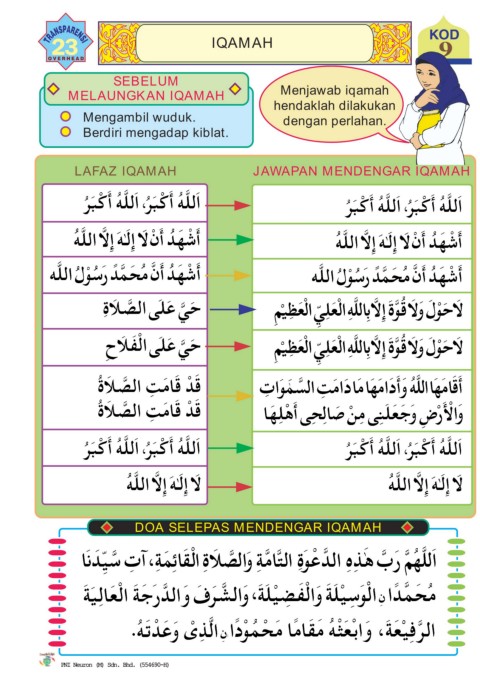 TRANSPARENSI
23
OVERHEAD
IQAMAH
KOD
9
SEBELUM
MELAUNGKAN IQAMAH
Mengambil wuduk.
Berdiri mengadap kiblat.
Menjawab iqamah
hendaklah dilakukan
dengan perlahan.
LAFAZ IQAMAH
JAWAPAN MENDENGAR IQAMAH
اَللَّهُ أَكْبَرُ، اَللَّهُ أَكْبَرُ
اَللَّهُ أَكْبَرُ، اَللَّهُ أَكْبَرُ
أَشْهَدُ أَنْ لَا إِلَهَ إِلَّا اللَّهُ
أَشْهَدُ أَنْ لَا إِلَهَ إِلَّا اللَّهُ
أَشْهَدُ أَنَّ مُحَمَّدً رَسُوْلُ اللَّه
أَشْهَدُ أَنَّ مُحَمَّدً رَسُوْلُ اللَّه
حَيَّ عَلَى الصَّلَاةِ
لَاحَوْلَ وَلَا قُوَّةَ إِلَّا بِاللَّهِ الْعَلِيِّ الْعَظِيْمِ
حَيَّ عَلَى الْفَلَاحِ
لَاحَوْلَ وَلَا قُوَّةَ إِلَّا بِاللَّهِ الْعَلِيِّ الْعَظِيْمِ
قَدْ قَامَتِ الصَّلَاةُ
قَدْ قَامَتِ الصَّلَاةُ
أَقَامَهَا اللَّهُ وَأَدَامَهَا مَادَامَتِ السَّمَوَاتِ
وَالْأَرْضِ وَجَعَلَنِى مِنْ صَالِحِى أَهْلِهَا
اَللَّهُ أَكْبَرُ، اَللَّهُ أَكْبَرُ
اَللَّهُ أَكْبَرُ، اَللَّهُ أَكْبَرُ
لَا إِلَهَ إِلَّا اللَّهُ
لَا إِلَهَ إِلَّا اللَّهُ
DOA SELEPAS MENDENGAR IQAMAH
اَللَّهُمَّ رَبَّ هَذِهِ الدَّعْوَةِ التَّامَّةِ وَالصَّلَاةِ الْقَائِمَةِ، آتِ سَيِّدَنَا
مُحَمَّدًا نِ الْوَسِيْلَةَ وَالْفَضِيْلَةَ، وَالشَّرَفَ وَالدَّرَجَةَ الْعَالِيَةَ
الرَّفِيْعَةَ، وَابْعَثْهُ مَقَامًا مَحْمُوْدًا نِ الَّذِىْ وَعَدْتَهُ.
PNI Neuron (M) Sdn. Bhd. (554690-H)